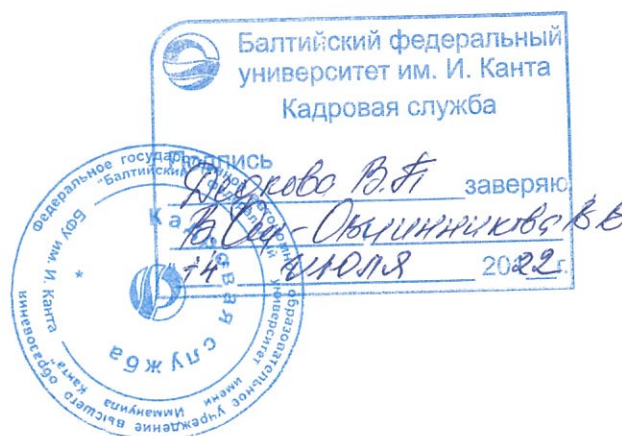 Балтийский федеральный
университет им. И. Канта
Кадровая служба
Подпись
Дедкова В.П заверяю
Овчинникова В.В
"14" июля 2022 г.
Федеральное государственное автономное образовательное учреждение высшего образования
"Балтийский федеральный университет имени Иммануила Канта"
БФУ им. И. Канта
Кадровая служба